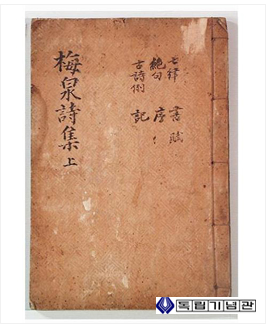 梅泉詩集上
七律 書 賦
絶句 序
古詩 記
독립기념관